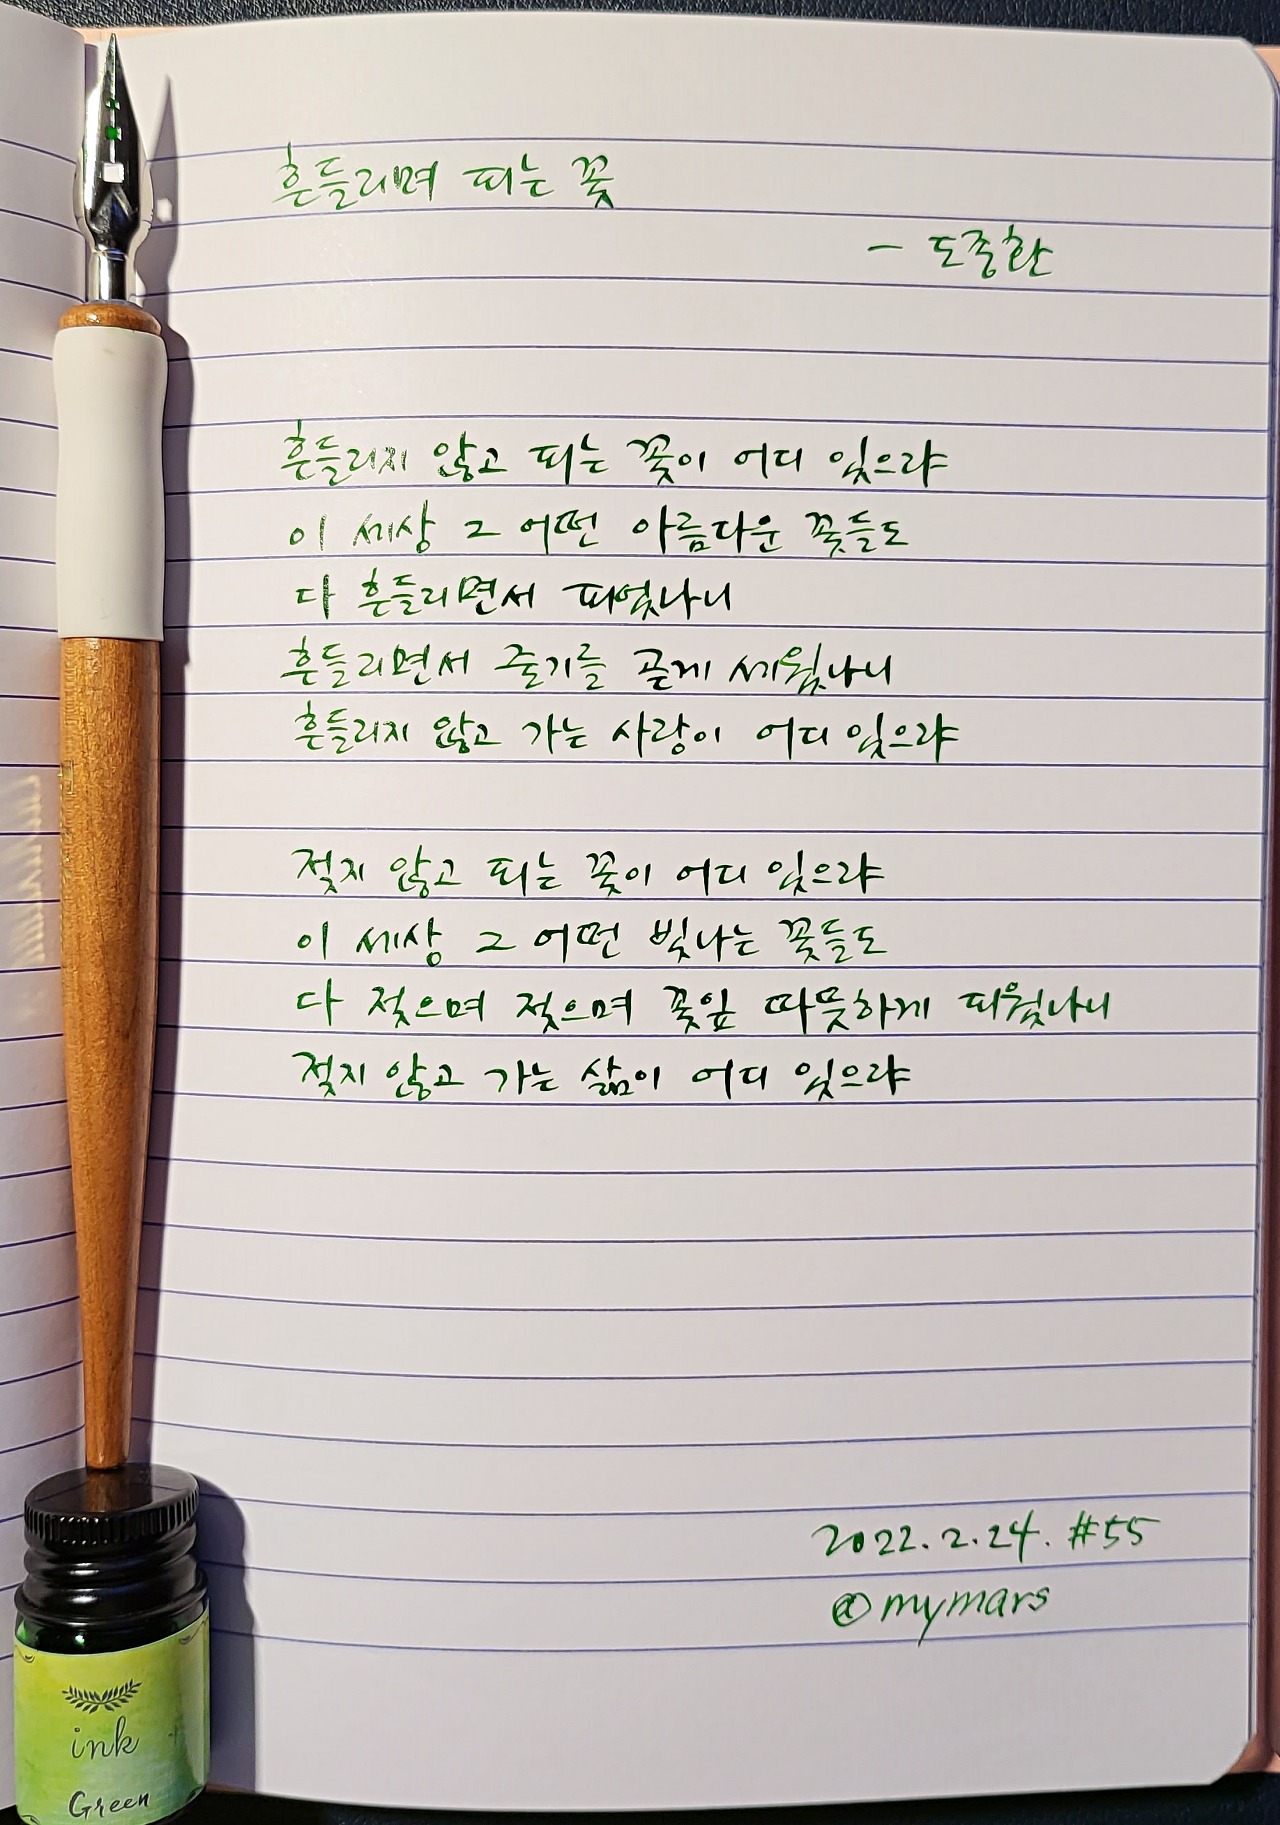 흔들리며 피는 꽃
- 도종환
흔들리지 않고 피는 꽃이 어디 있으랴
이 세상 그 어떤 아름다운 꽃들도
다 흔들리면서 피었나니
흔들리면서 줄기를 곧게 세웠나니
흔들리지 않고 가는 사랑이 어디 있으랴
젖지 않고 피는 꽃이 어디 있으랴
이 세상 그 어떤 빛나는 꽃들도
다 젖으며 젖으며 꽃잎 따뜻하게 피웠나니
젖지 않고 가는 삶이 어디 있으랴
2022.2.24. #55
@mymars
ink
Green